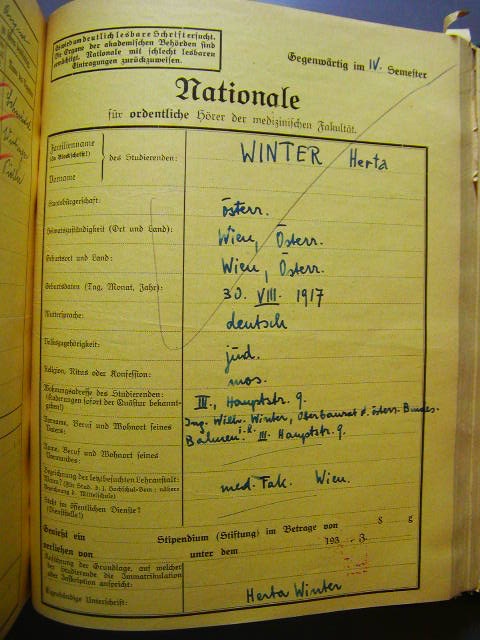 Es wird um deutlich lesbare Schrift ersucht.
Die Organe der akademischen Behörden sind
ermächtigt, Nationale mit schlecht lesbaren
Eintragungen zurückzuweisen.
Gegenwärtig im IV. Semester
Nationale
für ordentliche Hörer der medizinischen Fakultät.
Familienname
(in Blockschrift)
des Studierenden: WINTER Herta
Vorname
Staatsbürgerschaft: österr.
Heimatzuständigkeit (Ort und Land): Wien, Österr.
Geburtsort und Land: Wien, Österr.
Geburtsdaten (Tag, Monat, Jahr): 30. VIII. 1917
Muttersprache: deutsch
Volkszugehörigkeit: jüd.
Religion, Ritus oder Konfession: mos.
Wohnungsadresse des Studierenden: III., Hauptstr. 9.
(Änderungen sofort der Quästur bekannt-
geben!)
Vorname, Beruf und Wohnort seines Ing. Wilh. Winter, Oberbaurat d. österr. Bundes-
Vaters: Bahnen. i.R. III Hauptstr. 9.
Name, Beruf und Wohnort seines
Vormundes:
Bezeichnung der letztbesuchten Lehranstalt: med. Fak. Wien.
Steht im öffentlichen Dienste?
(Dienststelle?)
Genießt ein Stipendium (Stiftung) im Betrage von S g
verliehen von unter dem 193 3.
Anführung der Grundlage, auf welcher
der Studierende die Immatrikulation
oder Inskription anspricht:
Eigenhändige Unterschrift: Herta Winter